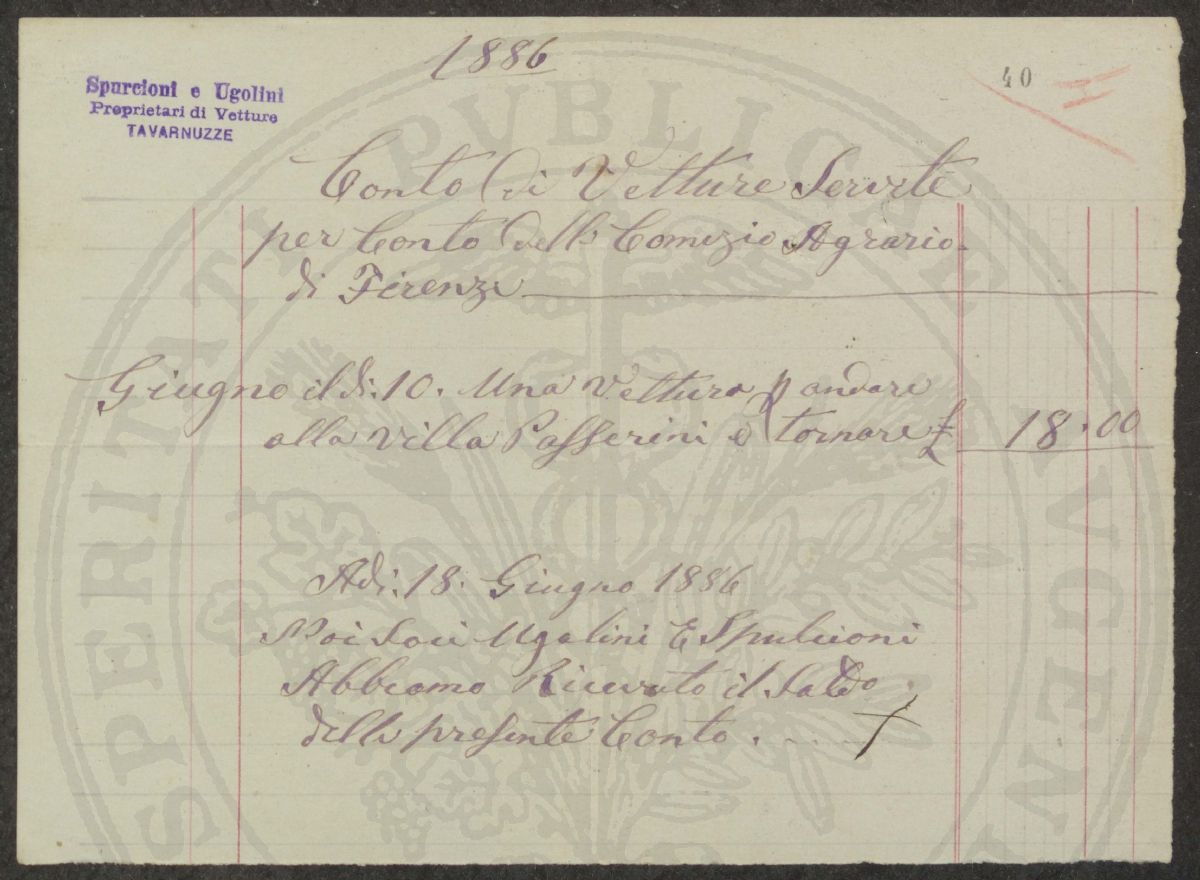 1886
40
Spurcioni e Ugolini
Proprietari di Vetture
TAVARNUZZE
Conto di Vetture Servite
per Conto dell Comizio Agrario
di Firenze
Giugno il di: 10. Una Vettura p andare
alla Villa Passerini e tornare £ 18.00
Adi: 18. Giugno 1886
Noi Soci Ugolini E Spulcioni
Abbiamo Ricevuto il Saldo
delle presente Conto.
PROSPERITATI PVBLICAE AVGENDAE